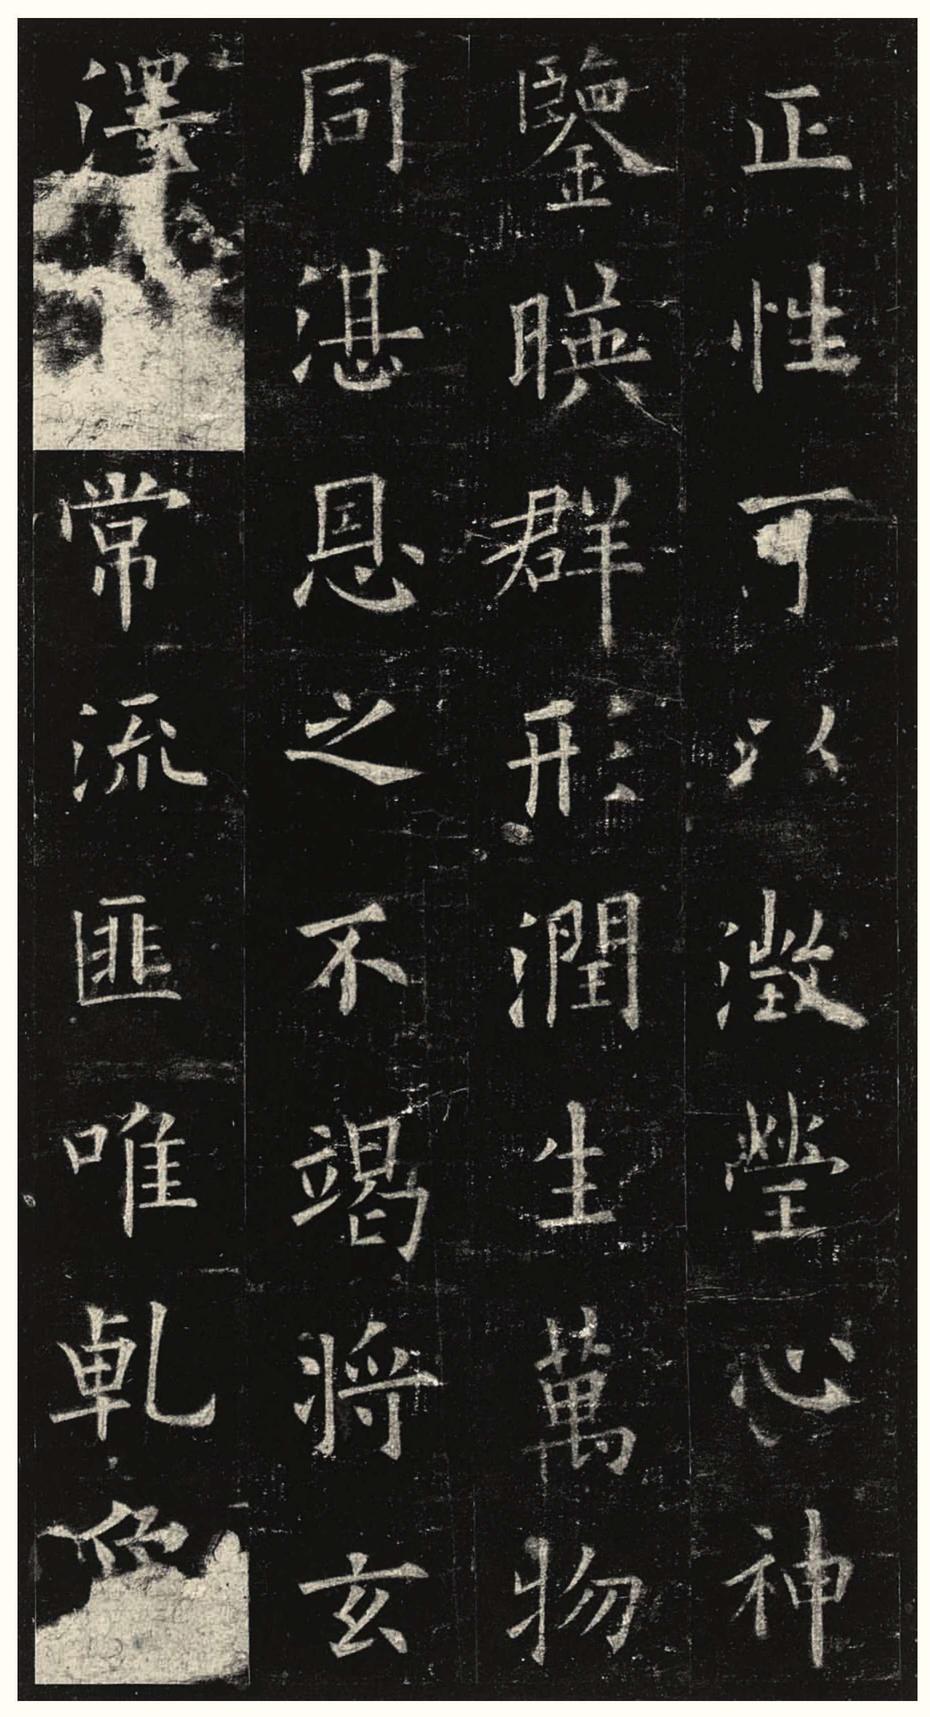 正性可以澂瑩心神
鑒暎群形潤生萬物
同湛恩之不竭將玄
澤常流匪唯乹